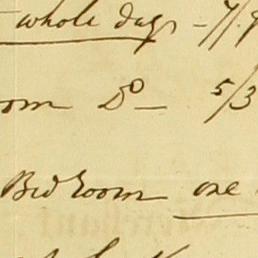 whole days - 7/9
oom Do — 5/3
Bed Room one